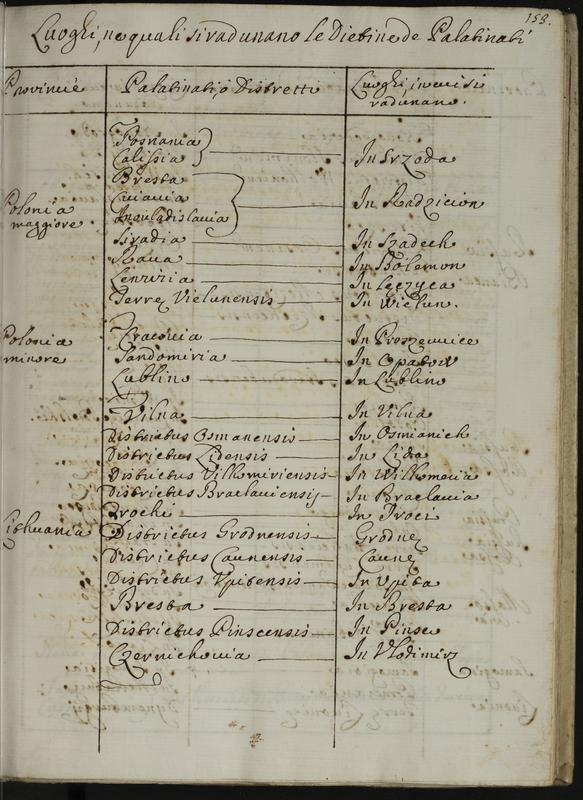 153.
Luoghi, ne quali si radunano le Dietine de Palatinati
Provincie Palatinati, ò Distretti Luoghi, in cui si
radunano.
Posnania
Calissia In Srzoda
Bresta
Cuiavia In Radzicion
Polonia
maggiore Inouladislavia
Siradia In Szadech
Raua In Bolemon
Lenricia In Leczyca
Terre Vielunensis In Wielun.
Polonia
minore Cracovia In Proszewice
Sandomiria In Opatow
Lublino In Lublino
Vilna In Vilna
Districtus Osmanensis In Osmianich
Districtus Lidensis In Lida
Districtus Vilkomiriensis In Wilkomeria
Districtus Braclaviensis In Braclavia
Trochi In Troci
Lithuania Districtus Grodnensis Grodnez
Districtus Caunensis Caunez
Districtus Vpitensis In Vpita
Bresta In Bresta
Districtus Pinscensis In Pinsco
Czernichovia In Vlodimirz